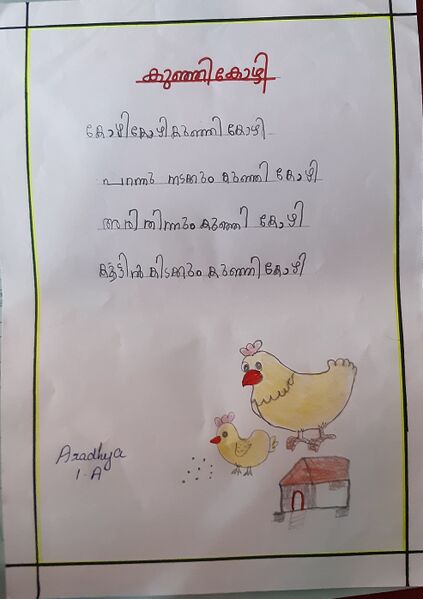 കുഞ്ഞികോഴി
കോഴികോഴി കുഞ്ഞികോഴി
പറന്നു നടക്കും കുഞ്ഞി കോഴി
അരി തിന്നും കുഞ്ഞി കോഴി
കൂട്ടിൽ കിടക്കും കുഞ്ഞി കോഴി
Aradhya
1-A